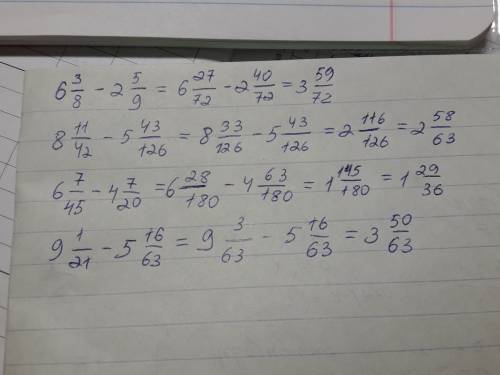 6 3/8 - 2 5/9 = 6 27/72 - 2 40/72 = 3 59/72
8 11/42 - 5 43/126 = 8 33/126 - 5 43/126 = 2 116/126 = 2 58/63
6 7/45 - 4 7/20 = 6 28/180 - 4 63/180 = 1 145/180 = 1 29/36
9 1/21 - 5 16/63 = 9 3/63 - 5 16/63 = 3 50/63